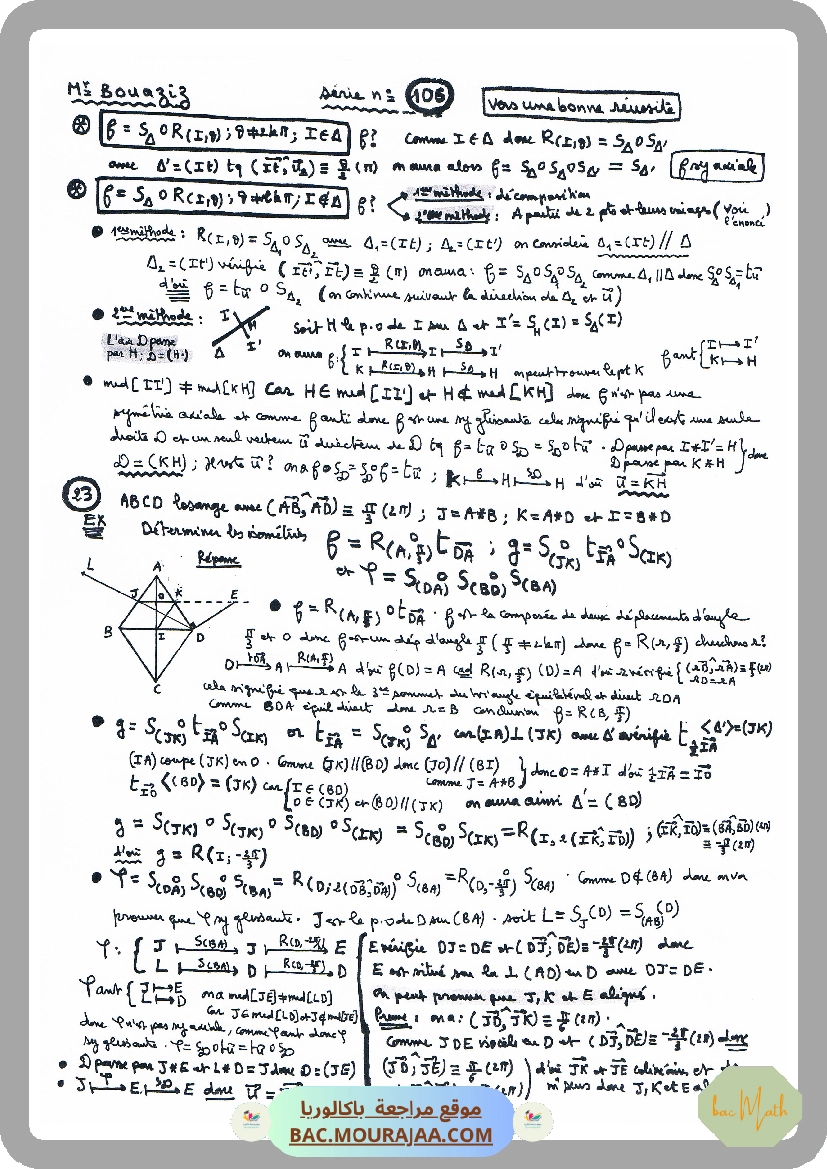 Mr Bouaziz série n° 106 Vers une bonne réussite
⊛ f = S_Δ o R(I,θ) ; θ≠2kπ ; I∈Δ f? Comme I∈Δ donc R(I,θ) = S_Δ o S_Δ'
avec Δ'=(It) tq (It^, u_Δ) ≡ θ/2 (π) on aura alors f = S_Δ o S_Δ o S_Δ' = S_Δ' f sy axiale
⊛ f = S_Δ o R(I,θ) ; θ≠2kπ ; I∉Δ f? 1ère méthode : décomposition
2ème méthode : A partir de 2 pts et leurs images (voir l'énoncé)
• 1ère méthode : R(I,θ) = S_Δ1 o S_Δ2 avec Δ1=(It) ; Δ2=(It') on considère Δ1=(It) // Δ
Δ2=(It') vérifie (It'^, It) ≡ θ/2 (π) on aura : f = S_Δ o S_Δ1 o S_Δ2 comme Δ1 // Δ donc S_Δ o S_Δ1 = t_u
d'où f = t_u o S_Δ2 (on continue suivant la direction de Δ2 et u)
• 2ème méthode : I H Δ I' Soit H le p.o de I sur Δ et I' = S_H(I) = S_Δ(I)
L'axe D passe par H ; D=(H.)
on aura f: { I —R(I,θ)→ I —S_Δ→ I'
K —R(I,θ)→ H —S_Δ→ H on peut trouver le pt K f ant { I → I' K → H
• med[II'] ≠ med[KH] Car H∈med[II'] et H∉med[KH] donc f n'est pas une
symétrie axiale et comme f anti donc f est une sy glissante cela signifie qu'il existe une seule
droite D et un seul vecteur u directeur de D tq f = t_u o S_D = S_D o t_u . D passe par I*I' = H
D passe par K*H } donc
D = (KH) ; reste u ? on a f o S_D = S_D o f = t_u ; K —f→ H —S_D→ H d'où u = KH
23 ABCD losange avec (AB^, AD) ≡ π/3 (2π) ; J=A*B ; K=A*D et I=B*D
EX Déterminer les isométries f = R(A,π/3) o t_DA ; g = S(JK) o t_IA o S(IK)
et φ = S(DA) o S(BD) o S(BA)
Réponse
L A J O K E B I D C
• f = R(A,π/3) o t_DA . f est la composée de deux déplacements d'angle
π/3 et 0 donc f est un dép d'angle π/3 (π/3 ≠ 2kπ) donc f = R(r,π/3) cherchons r?
D —t_DA→ A —R(A,π/3)→ A d'où f(D) = A cad R(r,π/3)(D) = A d'où r vérifie { (rD^, rA) ≡ π/3 (2π) rD = rA
cela signifie que r est le 3ème sommet du triangle équilatéral et direct rDA
Comme BDA équil direct donc r=B Conclusion f = R(B,π/3)
• g = S(JK) o t_IA o S(IK) or t_IA = S(JK) o S_Δ' car (IA)⊥(JK) avec Δ' vérifie t_½IA <Δ'> = (JK)
(IA) coupe (JK) en O . Comme (JK)//(BD) donc (JO)//(BI)
comme J=A*B } donc O=A*I d'où ½IA = IO
t_IO <(BD)> = (JK) car { I∈(BD) O∈(JK) et (BD)//(JK) on aura ainsi Δ' = (BD)
g = S(JK) o S(JK) o S(BD) o S(IK) = S(BD) o S(IK) = R(I, 2(IK^, ID)) ; (IK^, ID) ≡ (BA^, BD) (2π) ≡ -π/3 (2π)
d'où g = R(I ; -2π/3)
• φ = S(DA) o S(BD) o S(BA) = R(D ; 2(DB^, DA)) o S(BA) = R(D, -2π/3) o S(BA) . Comme D∉(BA) donc on va
prouver que φ sy glissante . J est le p.o de D sur (BA) . soit L = S_J(D) = S(AB)(D)
φ : { J —S(BA)→ J —R(D,-2π/3)→ E
L —S(BA)→ D —R(D,-2π/3)→ D
φ ant { J → E L → D on a med[JE] ≠ med[LD]
Car J∈med[LD] et J∉med[JE]
donc φ n'est pas sy axiale, comme φ ant donc φ
sy glissante . φ = S_D o t_u = t_u o S_D
• D passe par J*E et L*D = J donc D = (JE)
• J —φ→ E —S_D→ E donc u =
E vérifie DJ=DE et (DJ^, DE) ≡ -2π/3 (2π) donc
E est situé sur la ⊥ (AD) en D avec DJ=DE .
on peut prouver que J, K et E alignés .
Preuve : on a : (JD^, JK) ≡ π/6 (2π) .
comme JDE isocèle en D et (DJ^, DE) ≡ -2π/3 (2π) donc
(JD^, JE) ≡ π/6 (2π) } d'où JK et JE colinéaires et de
m̂ sens donc J, K et E
موقع مراجعة باكالوريا
BAC.MOURAJAA.COM
bac Math